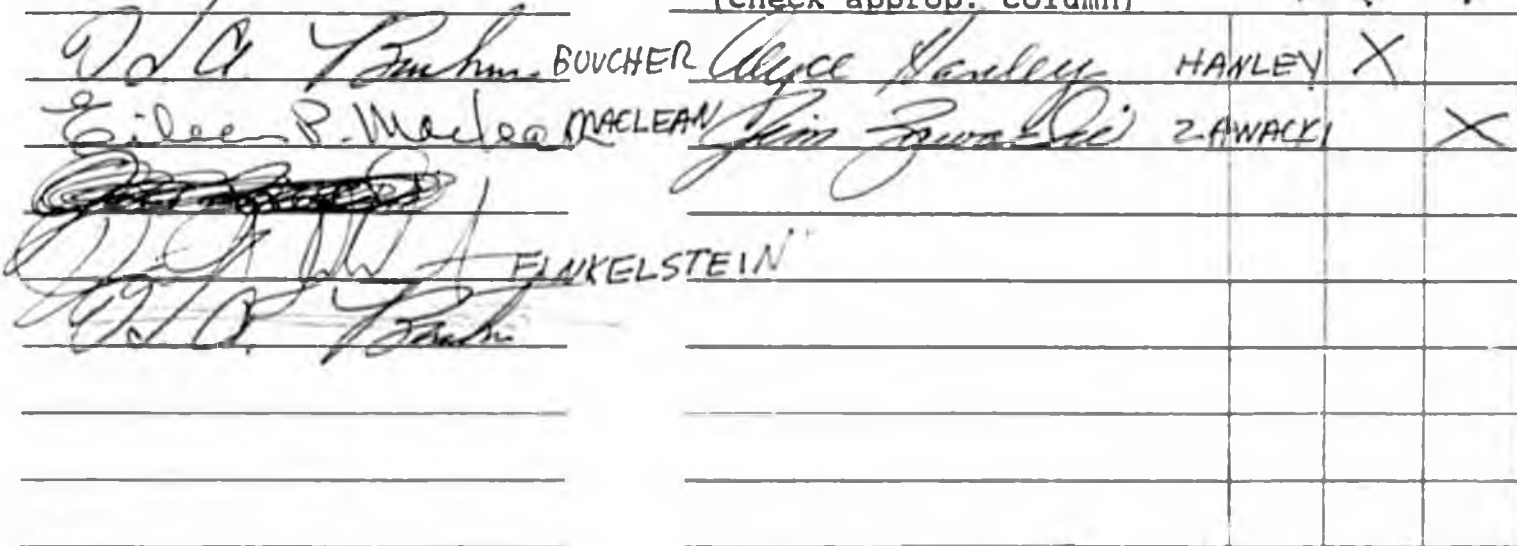 (check approp. column)
BOUCHER Alyce Hanley HANLEY X
Eileen P. Maclean MACLEAN Jim Zawacki ZAWACKI X
FINKELSTEIN